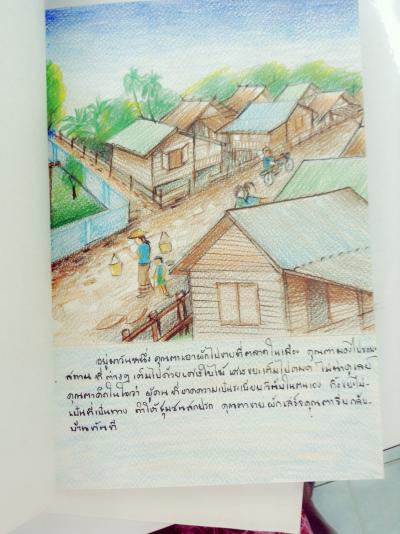 อยู่มาวันหนึ่ง คุณตาเอาผักไปขายที่ตลาดในเมือง คุณตามองไปรอบๆ
สถานที่ต่างๆ เต็มไปด้วยเศษใบไม้ เศษขยะเต็มไปหมด ไม่น่าดูเลย
คุณตาคิดในใจว่า ผู้คนที่ขาดความเป็นระเบียบวินัยในตนเอง ทิ้งขยะไม่
เป็นที่เป็นทาง ทำให้ชุมชนสกปรก คุณตาขายผักเสร็จคุณตารีบกลับ
บ้านทันที